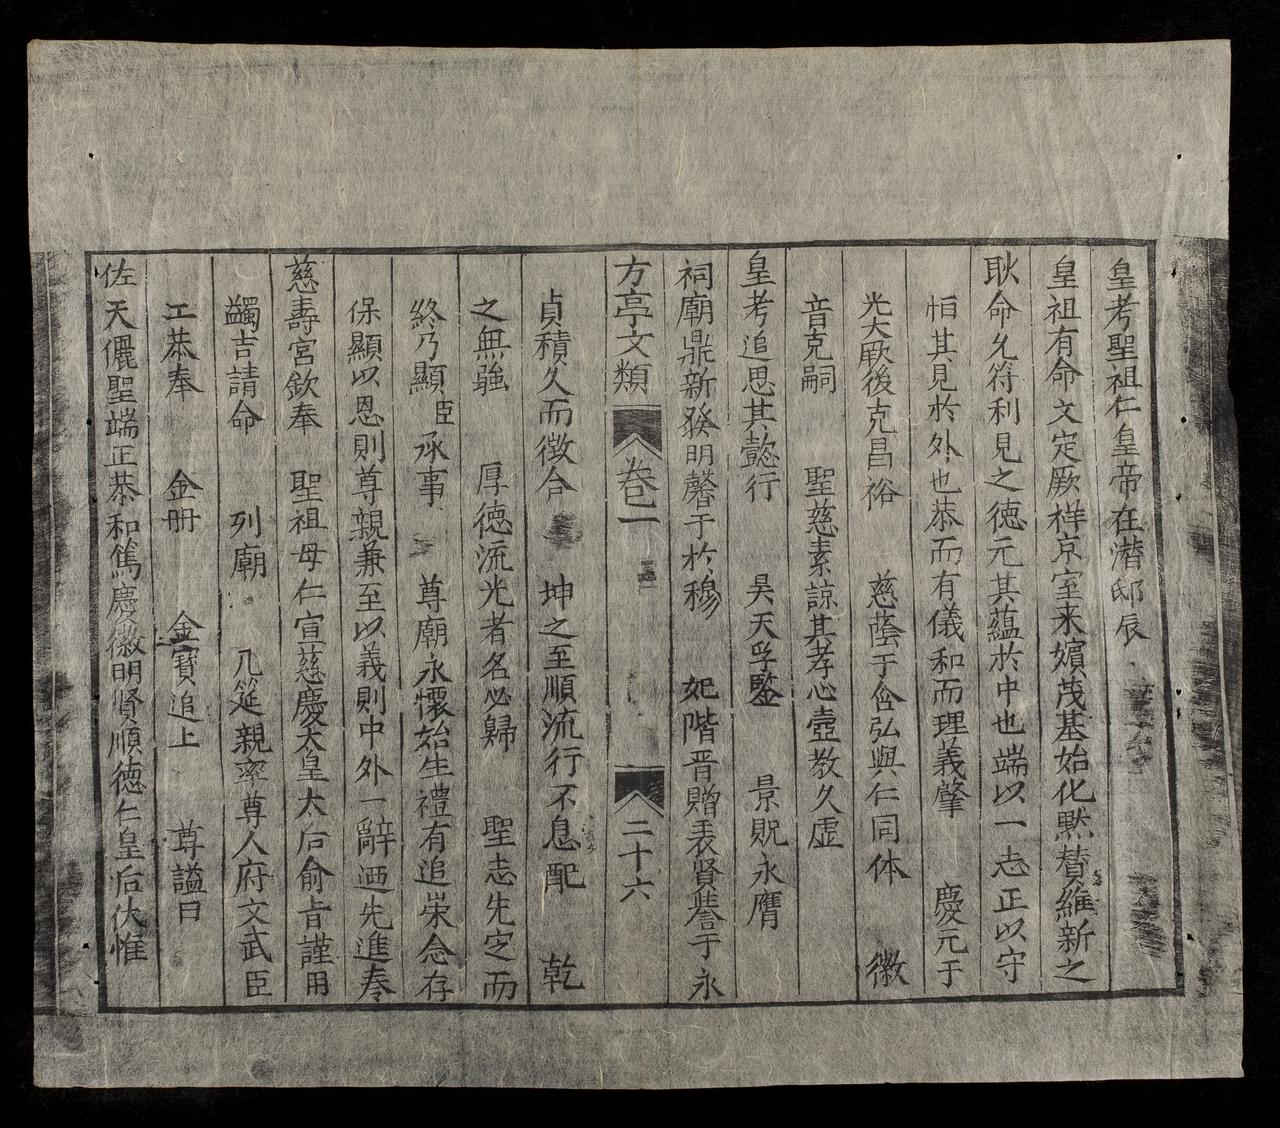 皇考聖祖仁皇帝在潛邸辰
皇祖有命文定厥祥京室来嬪茂基始化黙賛維新之
耿命允符利見之德元其蘊於中也端以一志正以守
恒其見於外也恭而有儀和而理義肇 慶元于
光大厥後克昌裕 慈蔭于含弘與仁同体 徽
音克嗣 聖慈素諒其孝心壼教久虚
皇考追思其懿行 昊天孚鑒 景貺永膺
祠廟鼎新發明馨于於穆 妃階晋贈表賢譽于永
方亭文類 卷二 二十六
貞積久而徴合 坤之至順流行不息配 乾
之無彊 厚德流光者名必歸 聖志先定而
終乃顯臣承事 尊廟永懷始生禮有追崇念存
保顯以恩則尊親兼至以義則中外一辭迺先進奏
慈壽宮欽奉 聖祖母仁宣慈慶太皇太后俞旨謹用
蠲吉請命 列廟 几筵親率尊人府文武臣
工恭奉 金册 金寶追上 尊謚曰
佐天儷聖端正恭和篤慶徽明賢順德仁皇后伏惟